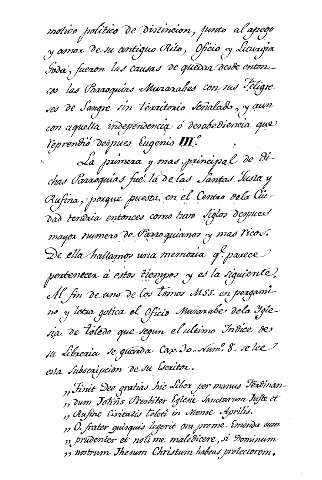 motivo politico de Distincion, junto al apego
y amor de su antiguo Rito, Oficio y Liturgia
toda, fueron las causas de quedar desde enton-
ces las Parroquias Muzarabes con sus Feligre-
ses de Sangre sin territorio Señalado, y aun
con aquella independencia ó desobediencia que
reprendió despues Eugenio III.º
La primera y mas principal de di-
chas Parroquias fué la de las Santas Justa y
Rufina, porque puesta en el Centro de la Ciu-
dad tendria entonces como tran Siglos despues
mayor numero de Parroquianos y mas ricos.
De ella hallamos una memoria q.e parece
pertenecer á estos tiempos y es la siguiente.
Al fin de uno de los tomos MSS. en pergami-
no y letra gotica el Oficio Muzarabe de la Igle-
sia de Toledo que segun el ultimo Indice de
su Libreria se guarda Cax. 30. Num.º 8. se lee
esta Subscripcion de su Escritor.
„ Finit Deo gratias hic Liber per manus Ferdinan-
„ dum Johñis Presbiter Eglesie Sanctarum Juste et
„ Rufine Civitatis Toleti in Mense Aprilis.
„ O frater quisquis legerit ora pro me. Emenda eum
„ prudenter et noli me maledicere, si Dominum
„ nostrum Jhesum Christum habeas protectorem.